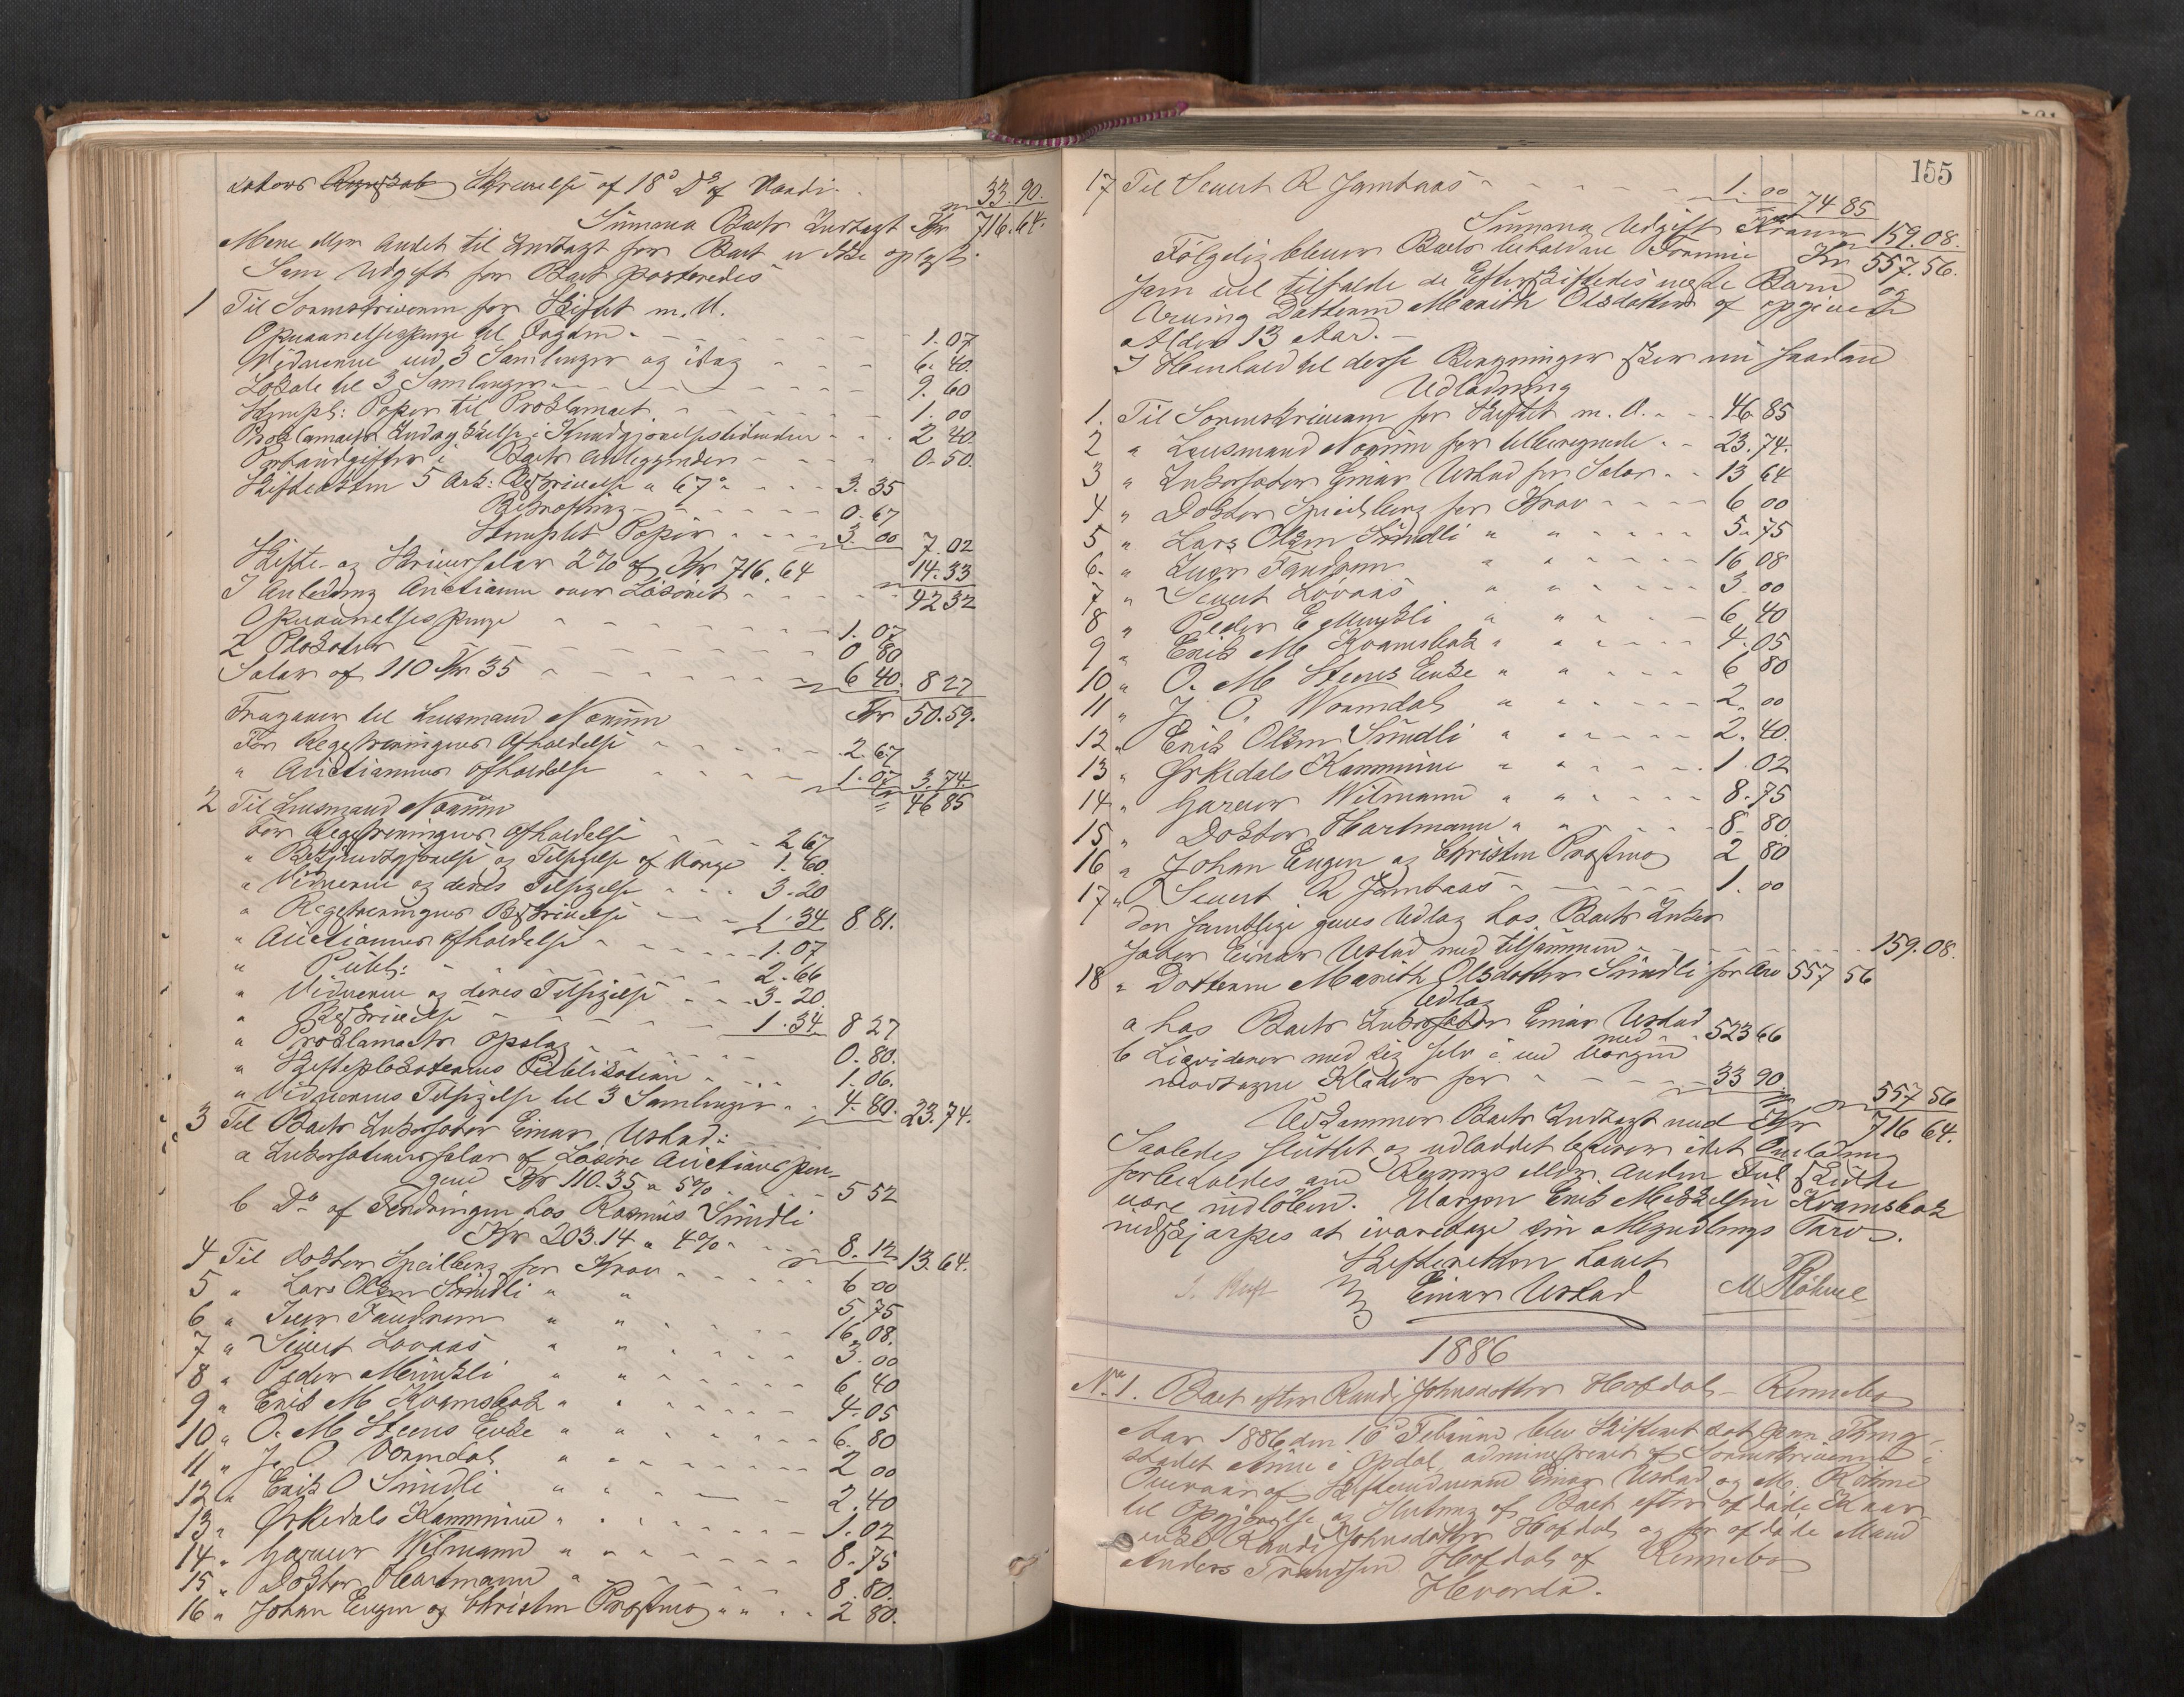 Skrivelse af 18d Ds of Vaadi - 33.90.
Summa Boets Indtægt Kr 716.64.
Mere eller andet til Indtægt for Boet er ikke oplyst.
Som Udgift for Boet posteredes
1 Til Sorenskriveren for Skiftet m. M.
Opkrævelsespenge til Fogden - 1.07
Vidnerne ved 3 Samlinger og idag - 6.40.
Lokale til 3 Samlinger - 9.60
Stempl: Papir til Proklamaet - 1.00
Proklamaets Indrykkelse i Kundgjørelsestidenden - 2 40.
Portoudgifter i Boets Anliggender - 0.50.
Skifteakten 5 Ark: Beskrivelse a 67 - 3.35
Bekræftning - 0.67
Stemplet Papir - 3.00 7.02
Skifte- og Skriversalær 2% af Kr 716.64 14.33
I Anledning Auctionen over Løsøret - 42 32
1.07
2 Plakater 0 80
Salær af 110 Kr 35 6 40. 8 27
Kr 50.59.
Fragaaer til Lensmand Norum
For Registreringens Afholdelse 2 67
" Auctionens Afholdelse 1.07 3.74.
46 85
2 Til Lensmand Norum
For Registreringens Afholdelse 2 67
" Bekjendtgjørelse og Tilsigelse af Værge 1.60.
" Vidnerne og deres Tilsigelse 3.20
" Registreringens Beskrivelse 1.34 8 81.
" Auctionens Afholdelse - 1.07
" Publ: - 2.66
" Vidnerne og deres Tilsigelse - 3.20.
" Beskrivelse 1.34 8 27
" Proklamaets Opslag 0.80.
" Skifteplakatens Publikation 1.06.
" Vidnernes Tilsigelse til 3 Samlinger 4.80. 23.74.
3 Til Boets Inkassator Einar Ustad:
a Inkassationssalær af Løsøre Auctionspen-
gene Kr 110.35 a 5% - 5 52
b Do af Fordringen hos Rasmus Sundli
Kr 203.14 a 4% - 8.12 13.64.
4 Til Doktor Speilberg for Krav 6 00
5 " Lars Olsen Sundli " " 5,75
6 " Iver Fandrem " " 16.08.
7 " Sivert Lovaas " " 3.00
8 " Peder Munkli " " 6.40
9 " Erik M Kramsbak " " 4.05
10 " O. M Steens Enke " " 6.80
11 " J. O. Wormdal " " 2.00
12 " Erik O Sundli " " 2.40
13 " Ørkedals Kommune " " 1.02
14 " Garver Wilmann " " 8.75
15 " Doktor Hartmann " 8.80.
16 " Johan Engen og Christen Præstmo " " 2 80.
155
17 Til Sivert R Jamtaas - 1.00 74 85
Summa Udgift Kroner 159.08.
Følgelig bliver Boets beholdne Formue Kr 557.56.
som vil tilfalde de Efterskiftedes næste Barn og
Arving Datteren Marith Olsdatter af opgivende
Alder 13 Aar. -
I Henhold til disse Beregninger sker nu saadan
Udlodning
1. Til Sorenskriveren for Skiftet m. M. - 46 85
2 " Lensmand Norum for tilberegnede - 23.74.
3 " Inkassator Einar Ustad for Salær - 13 64
4 " Doktor Speilberg for Krav - 6 00
5 " Lars Olsen Sundli " " 5.75
6. " Iver Fandrem " " 16 08
7 " Sivert Lovaas " " 3.00
8 " Peder E Munkli " " 6,40
9 " Erik M Kramsbak " " 4.05
10 " O. M Steens Enke " " 6 80
11 " J. O. Wormdal " " 2.00
12 " Erik Olsen Sundli " " 2.40.
13 " Ørkedals Kommune " " 1.02
14 " Garver Wilmann " " 8.75
15 " Doktor Hartmann " " 8.80.
16 " Johan Engen og Christen Præstmo 2 80
17 " Sivert R Jamtaas - 1.00
der samtlige gives Udlæg hos Boets Inkas
sator Einar Ustad med tilsammen - 159.08.
18 " Datteren Marith Olsdatter Sundli for Arv 557 56
Udlæg
a hos Boets Inkassator Einar Ustad med 523 66
b Liqviderer med sig selv i ved Værgen
modtagne Klæder for - 33 90. 557 56
Udkommer Boets Indtægt med Kr 716 64.
Saaledes sluttet og udloddet bliver idet Omlodning
forbeholdes om Regnings eller anden Feil skulde
være indløben. Værgen Erik Mikkelsen Kramsbak
indskjærpes at ivaretage sin Myndlings Tarv.
Skifteretten hævet
Einar Ustad M Röhme
1886
No 1. Boet efter Randi Johnsdatter Hofdal - Rennebo
Aar 1886 den 16d Februar blev Skifteret sat paa Thing-
stedet Aune i Opdal, administreret af Sorenskriveren i
Overvær af Skiftevidnerne Einar Ustad og M. Röhme
til Opgjørelse og Slutning af Boet efter afdøde Kaar
enke Randi Johnsdatter Hofdal og før afdøde Mand
Anders Trondsen Hofdal af Rennebo
Hvorda.